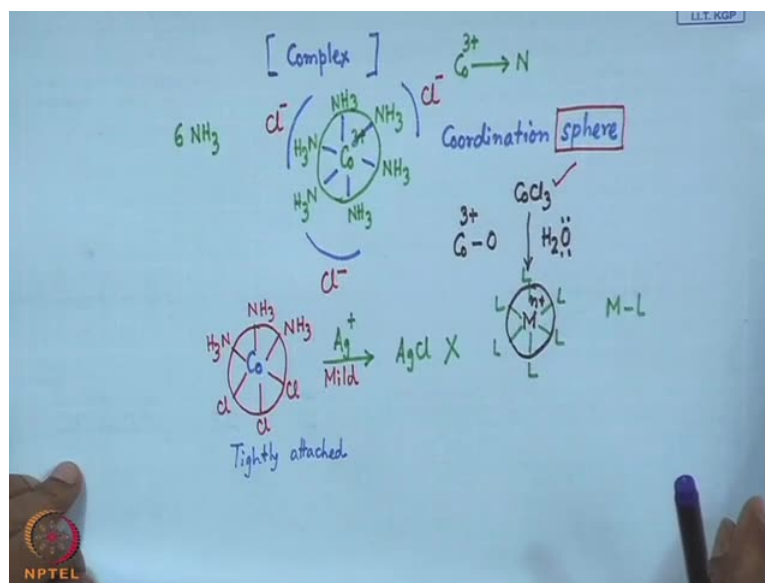 I.I.T. KGP
[ Complex ]
Co³⁺ → N
Cl⁻
Cl⁻
6 NH₃
NH₃
NH₃
H₃N
Co³⁺
NH₃
H₃N
NH₃
Coordination sphere
CoCl₃ ✓
Co³⁺ – O
H₂Ö
Cl⁻
L
L
L
Mⁿ⁺
L
L
L
M–L
NH₃
H₃N
NH₃
Co
Cl
Cl
Cl
Ag⁺
Mild
AgCl X
Tightly attached
NPTEL